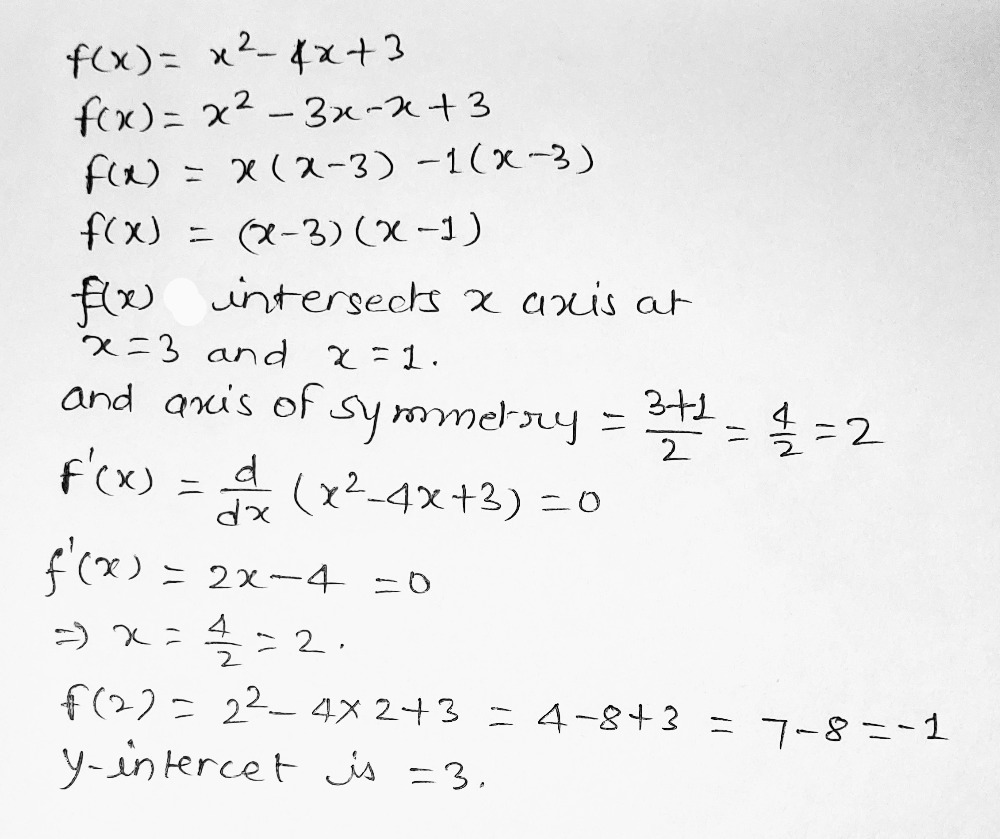 f(x) = x² - 4x + 3
f(x) = x² - 3x - x + 3
f(x) = x(x-3) - 1(x-3)
f(x) = (x-3)(x-1)
f(x) intersects x axis at
x = 3 and x = 1.
and axis of symmetry = (3+1)/2 = 4/2 = 2
f'(x) = d/dx (x² - 4x + 3) = 0
f'(x) = 2x - 4 = 0
⇒ x = 4/2 = 2.
f(2) = 2² - 4×2 + 3 = 4 - 8 + 3 = 7 - 8 = -1
y-intercet is = 3.